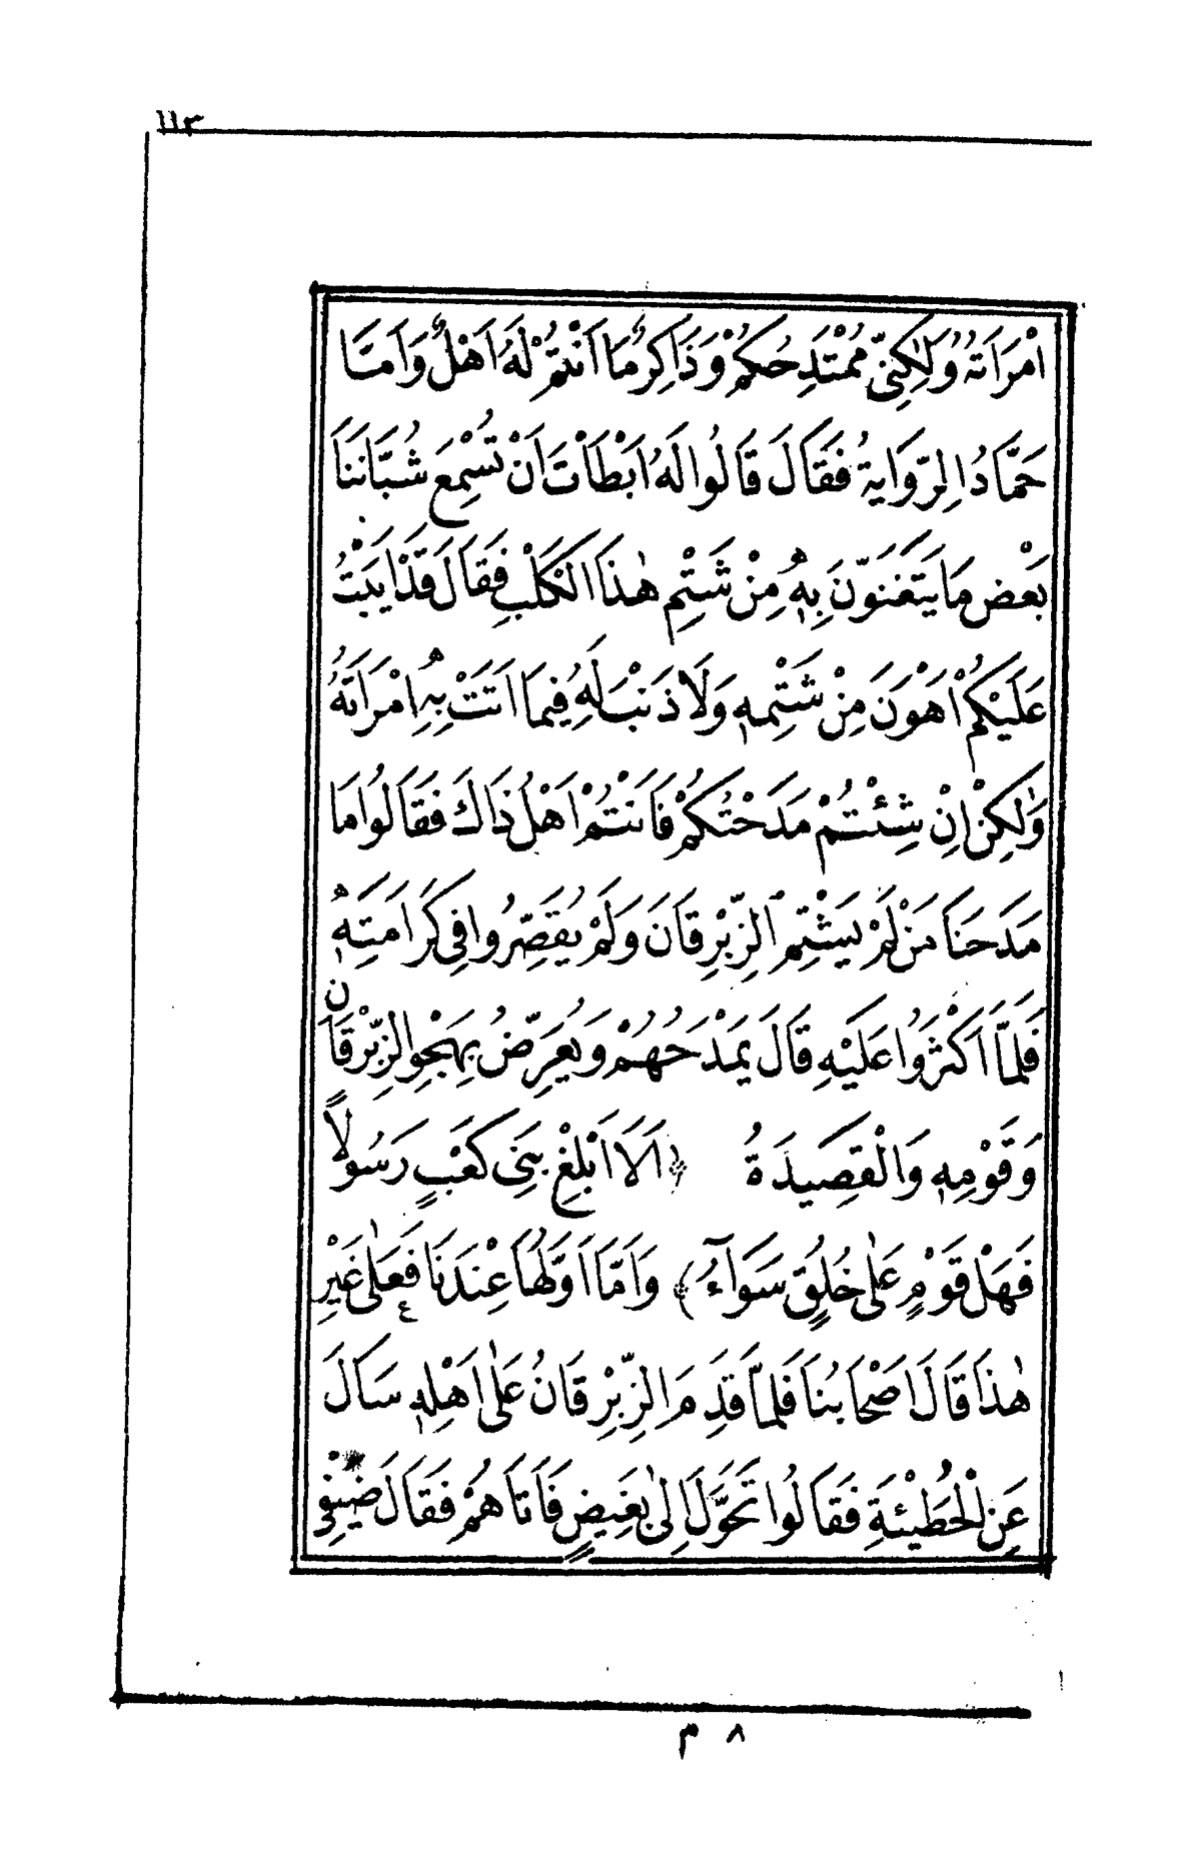 ١١٣
اِمْرَاَتَهُ وَلٰكِنّى مُمْتَدِحُكُمْ وَذَاكِرٌ مَا اَنْتُمْ لَهُ اَهْلٌ وَاَمَّا
حَمَّادُ الرِّوَايَةُ فَقَالَ قَالُوا لَهُ اَبْطَاْتَ اَنْ تُسْمِعَ شُبَّانَنَا
بَعْضَ مَا يَتَغَنَّوْنَ بِهِ مِنْ شَتْمِ هٰذَا الْكَلْبِ فَقَالَ قَدْ اَبَيْتُ
عَلَيْكُمْ اَهْوَنَ مِنْ شَتْمِهِ وَلَا ذَنْبَ لَهُ فِيمَا اَتَتْ بِهِ اِمْرَاَتُهُ
وَلٰكِنْ اِنْ شِئْتُمْ مَدَحْتُكُمْ فَاَنْتُمْ اَهْلُ ذَاكَ فَقَالُوا مَا
مَدَحَنَا مَنْ لَمْ يَشْتِمِ الزِّبْرِقَانَ وَلَمْ يُقَصِّرُوا فِى كَرَامَتِهِ
فَلَمَّا اَكْثَرُوا عَلَيْهِ قَالَ يَمْدَحُهُمْ وَيُعَرِّضُ بِهَجْوِ الزِّبْرِقَانِ
وَقَوْمِهِ وَالْقَصِيدَةُ ﴿اَلَا اَبْلِغْ بَنِى كَعْبٍ رَسُولًا
فَهَلْ قَوْمٍ عَلٰى خُلُقٍ سَوَآءُ﴾ وَاَمَّا اَوَّلُهَا عِنْدَنَا فَعَلٰى غَيْرِ
هٰذَا قَالَ اَصْحَابُنَا فَلَمَّا قَدِمَ الزِّبْرِقَانُ عَلٰى اَهْلِهِ سَاَلَ
عَنِ الْحُطَيْئَةِ فَقَالُوا تَحَوَّلَ اِلٰى بَغِيضٍ فَاَتَاهُمْ فَقَالَ ضَيْفِى
٨ م